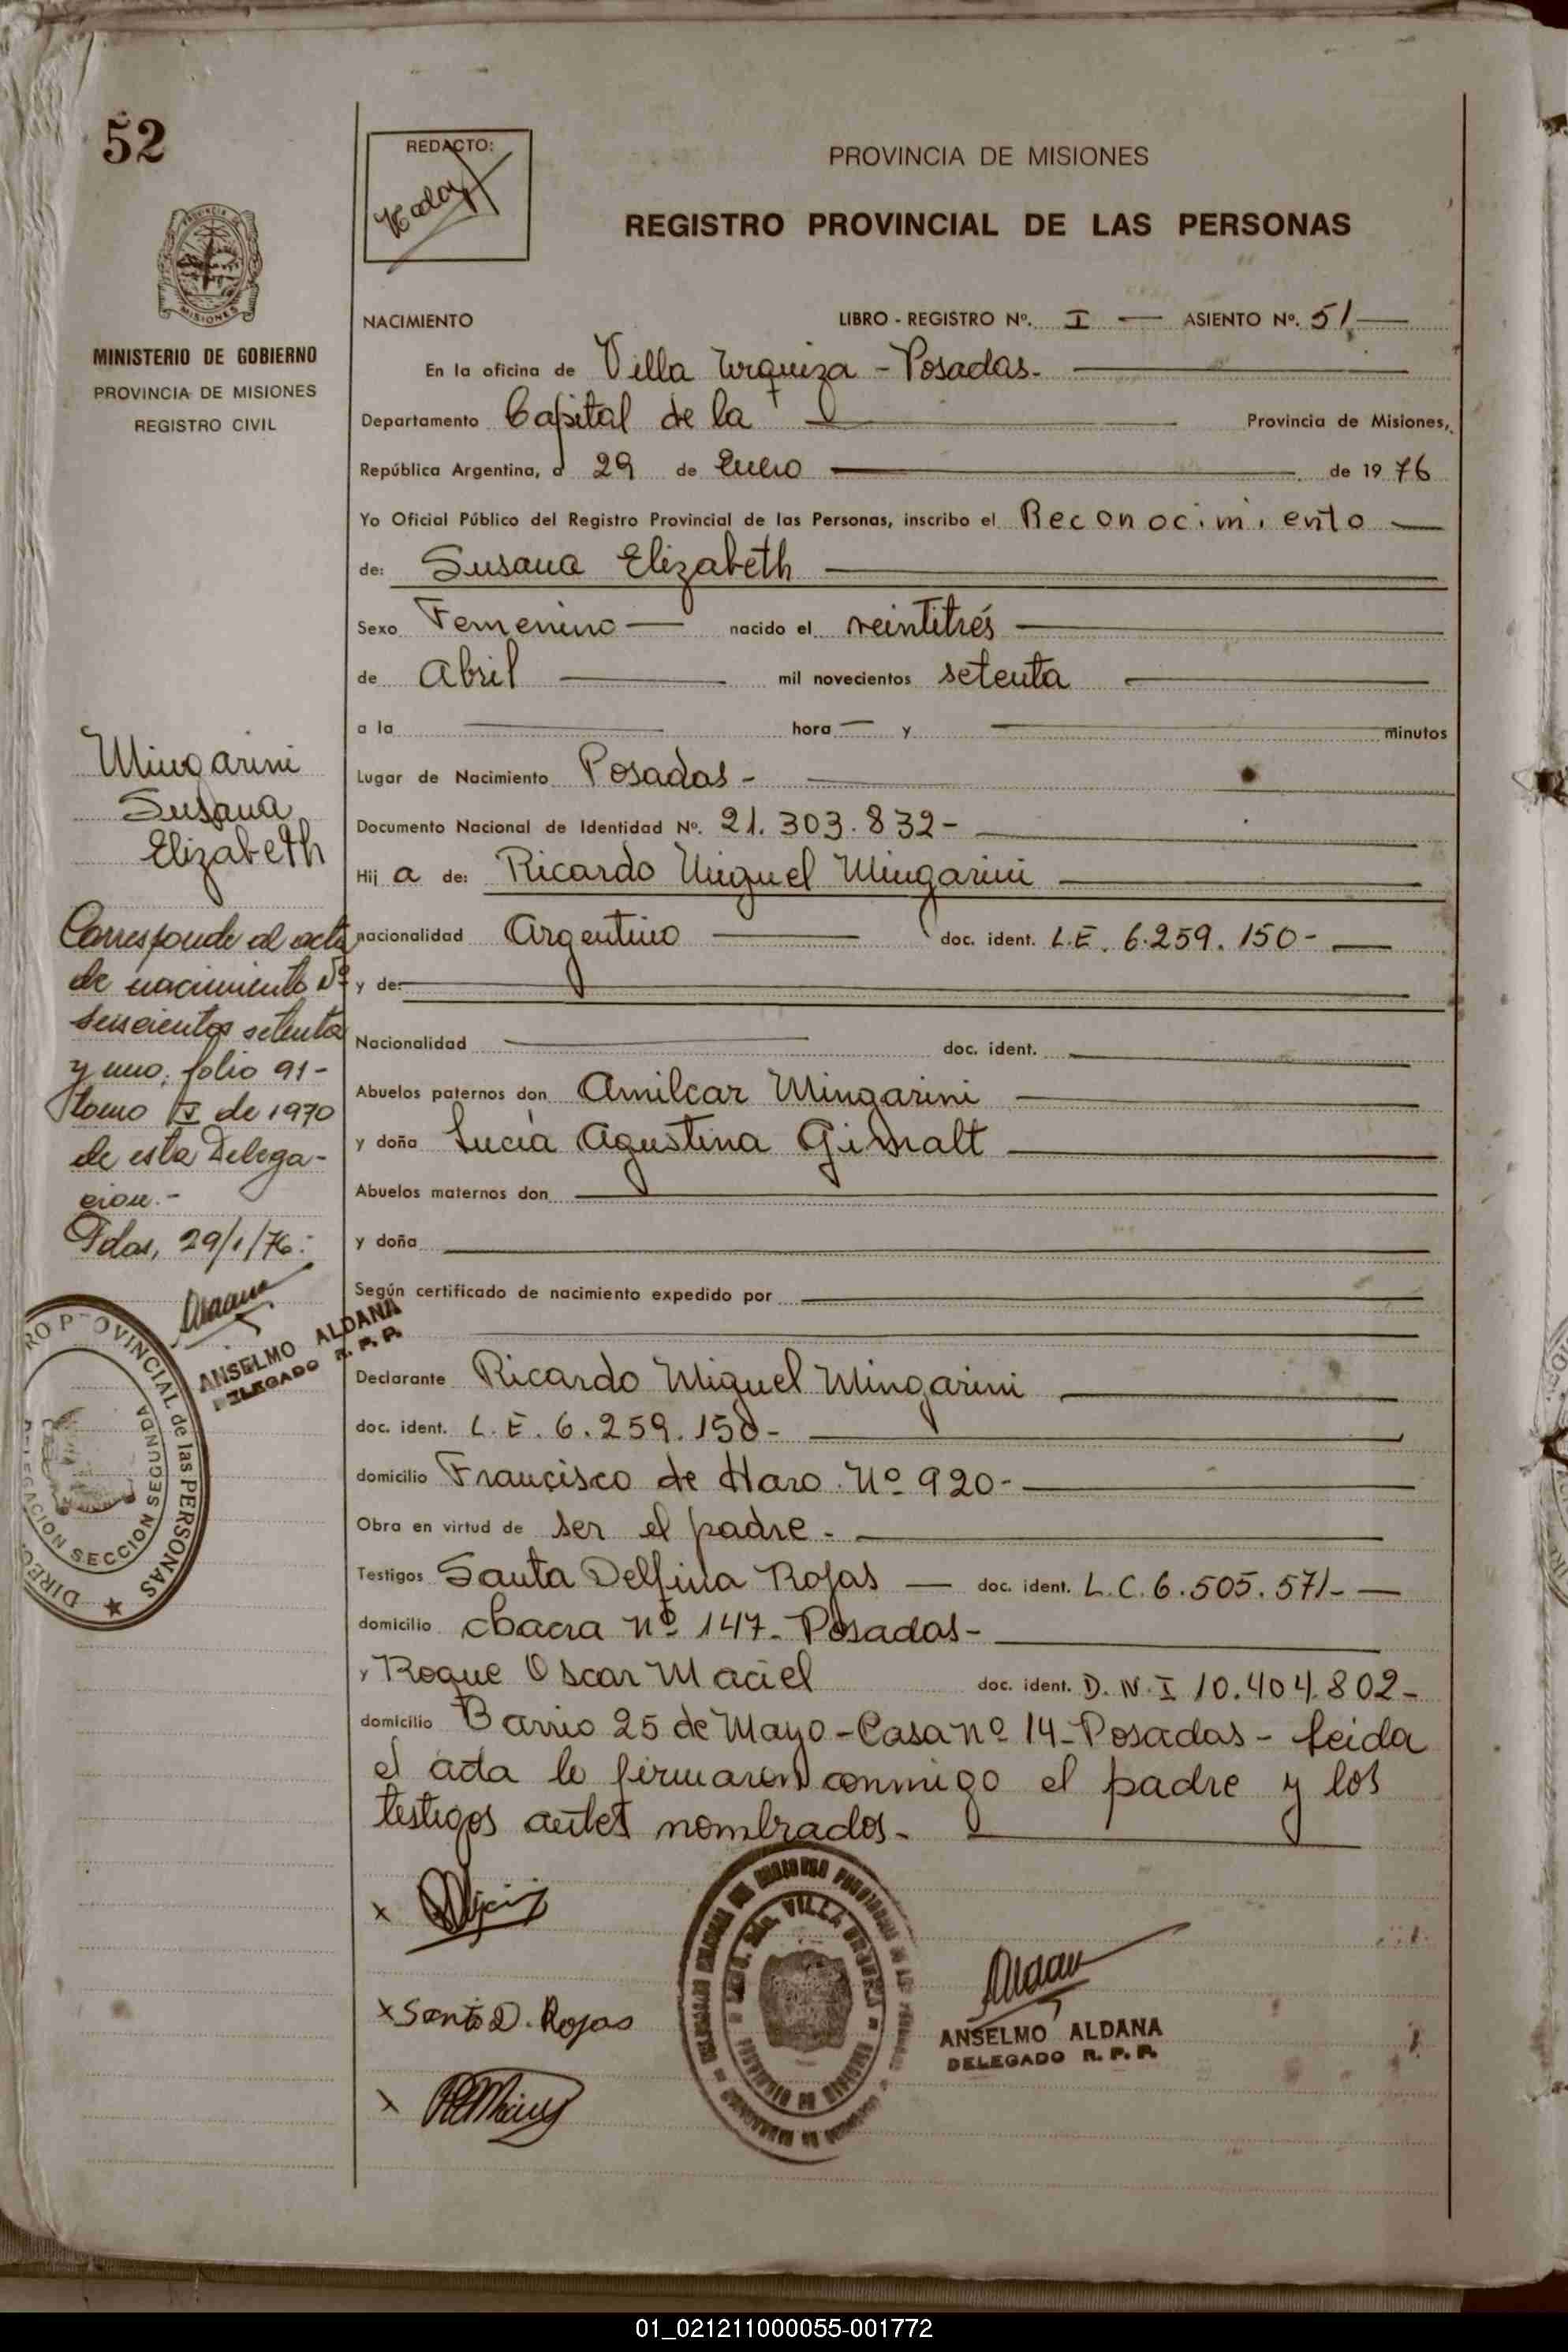 52
REDACTO:
PROVINCIA DE MISIONES
REGISTRO PROVINCIAL DE LAS PERSONAS
MISIONES
MINISTERIO DE GOBIERNO
PROVINCIA DE MISIONES
REGISTRO CIVIL
NACIMIENTO LIBRO - REGISTRO Nº. I — ASIENTO Nº. 51 —
En la oficina de Villa Urquiza - Posadas.
Departamento Capital de la Provincia de Misiones,
República Argentina, a 29 de Enero de 19 76
Yo Oficial Público del Registro Provincial de las Personas, inscribo el Reconocimiento
de: Susana Elizabeth
Sexo Femenino nacido el veintitrés
de Abril mil novecientos setenta
a la hora y minutos
Lugar de Nacimiento Posadas -
Documento Nacional de Identidad Nº. 21.303.832-
Hij a de: Ricardo Miguel Mingarini
nacionalidad Argentino doc. ident. L.E. 6.259.150-
y de:
Nacionalidad doc. ident.
Abuelos paternos don Amilcar Mingarini
y doña Lucía Agustina Gimalt
Abuelos maternos don
y doña
Según certificado de nacimiento expedido por
Declarante Ricardo Miguel Mingarini
doc. ident. L.E. 6.259.150-
domicilio Francisco de Haro Nº 920-
Obra en virtud de ser el padre.
Testigos Santa Delfina Rojas doc. ident. L.C. 6.505.571-
domicilio chacra nº 147- Posadas-
y Roque Oscar Maciel doc. ident. D.N.I 10.404.802-
domicilio Barrio 25 de Mayo - Casa nº 14- Posadas - leida
el acta lo firmaron conmigo el padre y los
testigos antes nombrados-
Mingarini
Susana
Elizabeth
Corresponde al acta
de nacimiento Nº
seiscientos setenta
y uno, folio 91-
tomo II de 1970
de esta Delega-
cion.-
Pdas, 29/1/76.
ANSELMO ALDANA
DELEGADO R. P. P.
PROVINCIAL de las PERSONAS
SECCION SEGUNDA
x Santa D. Rojas
VILLA URQUIZA
ANSELMO ALDANA
DELEGADO R. P. P.
01_021211000055-001772